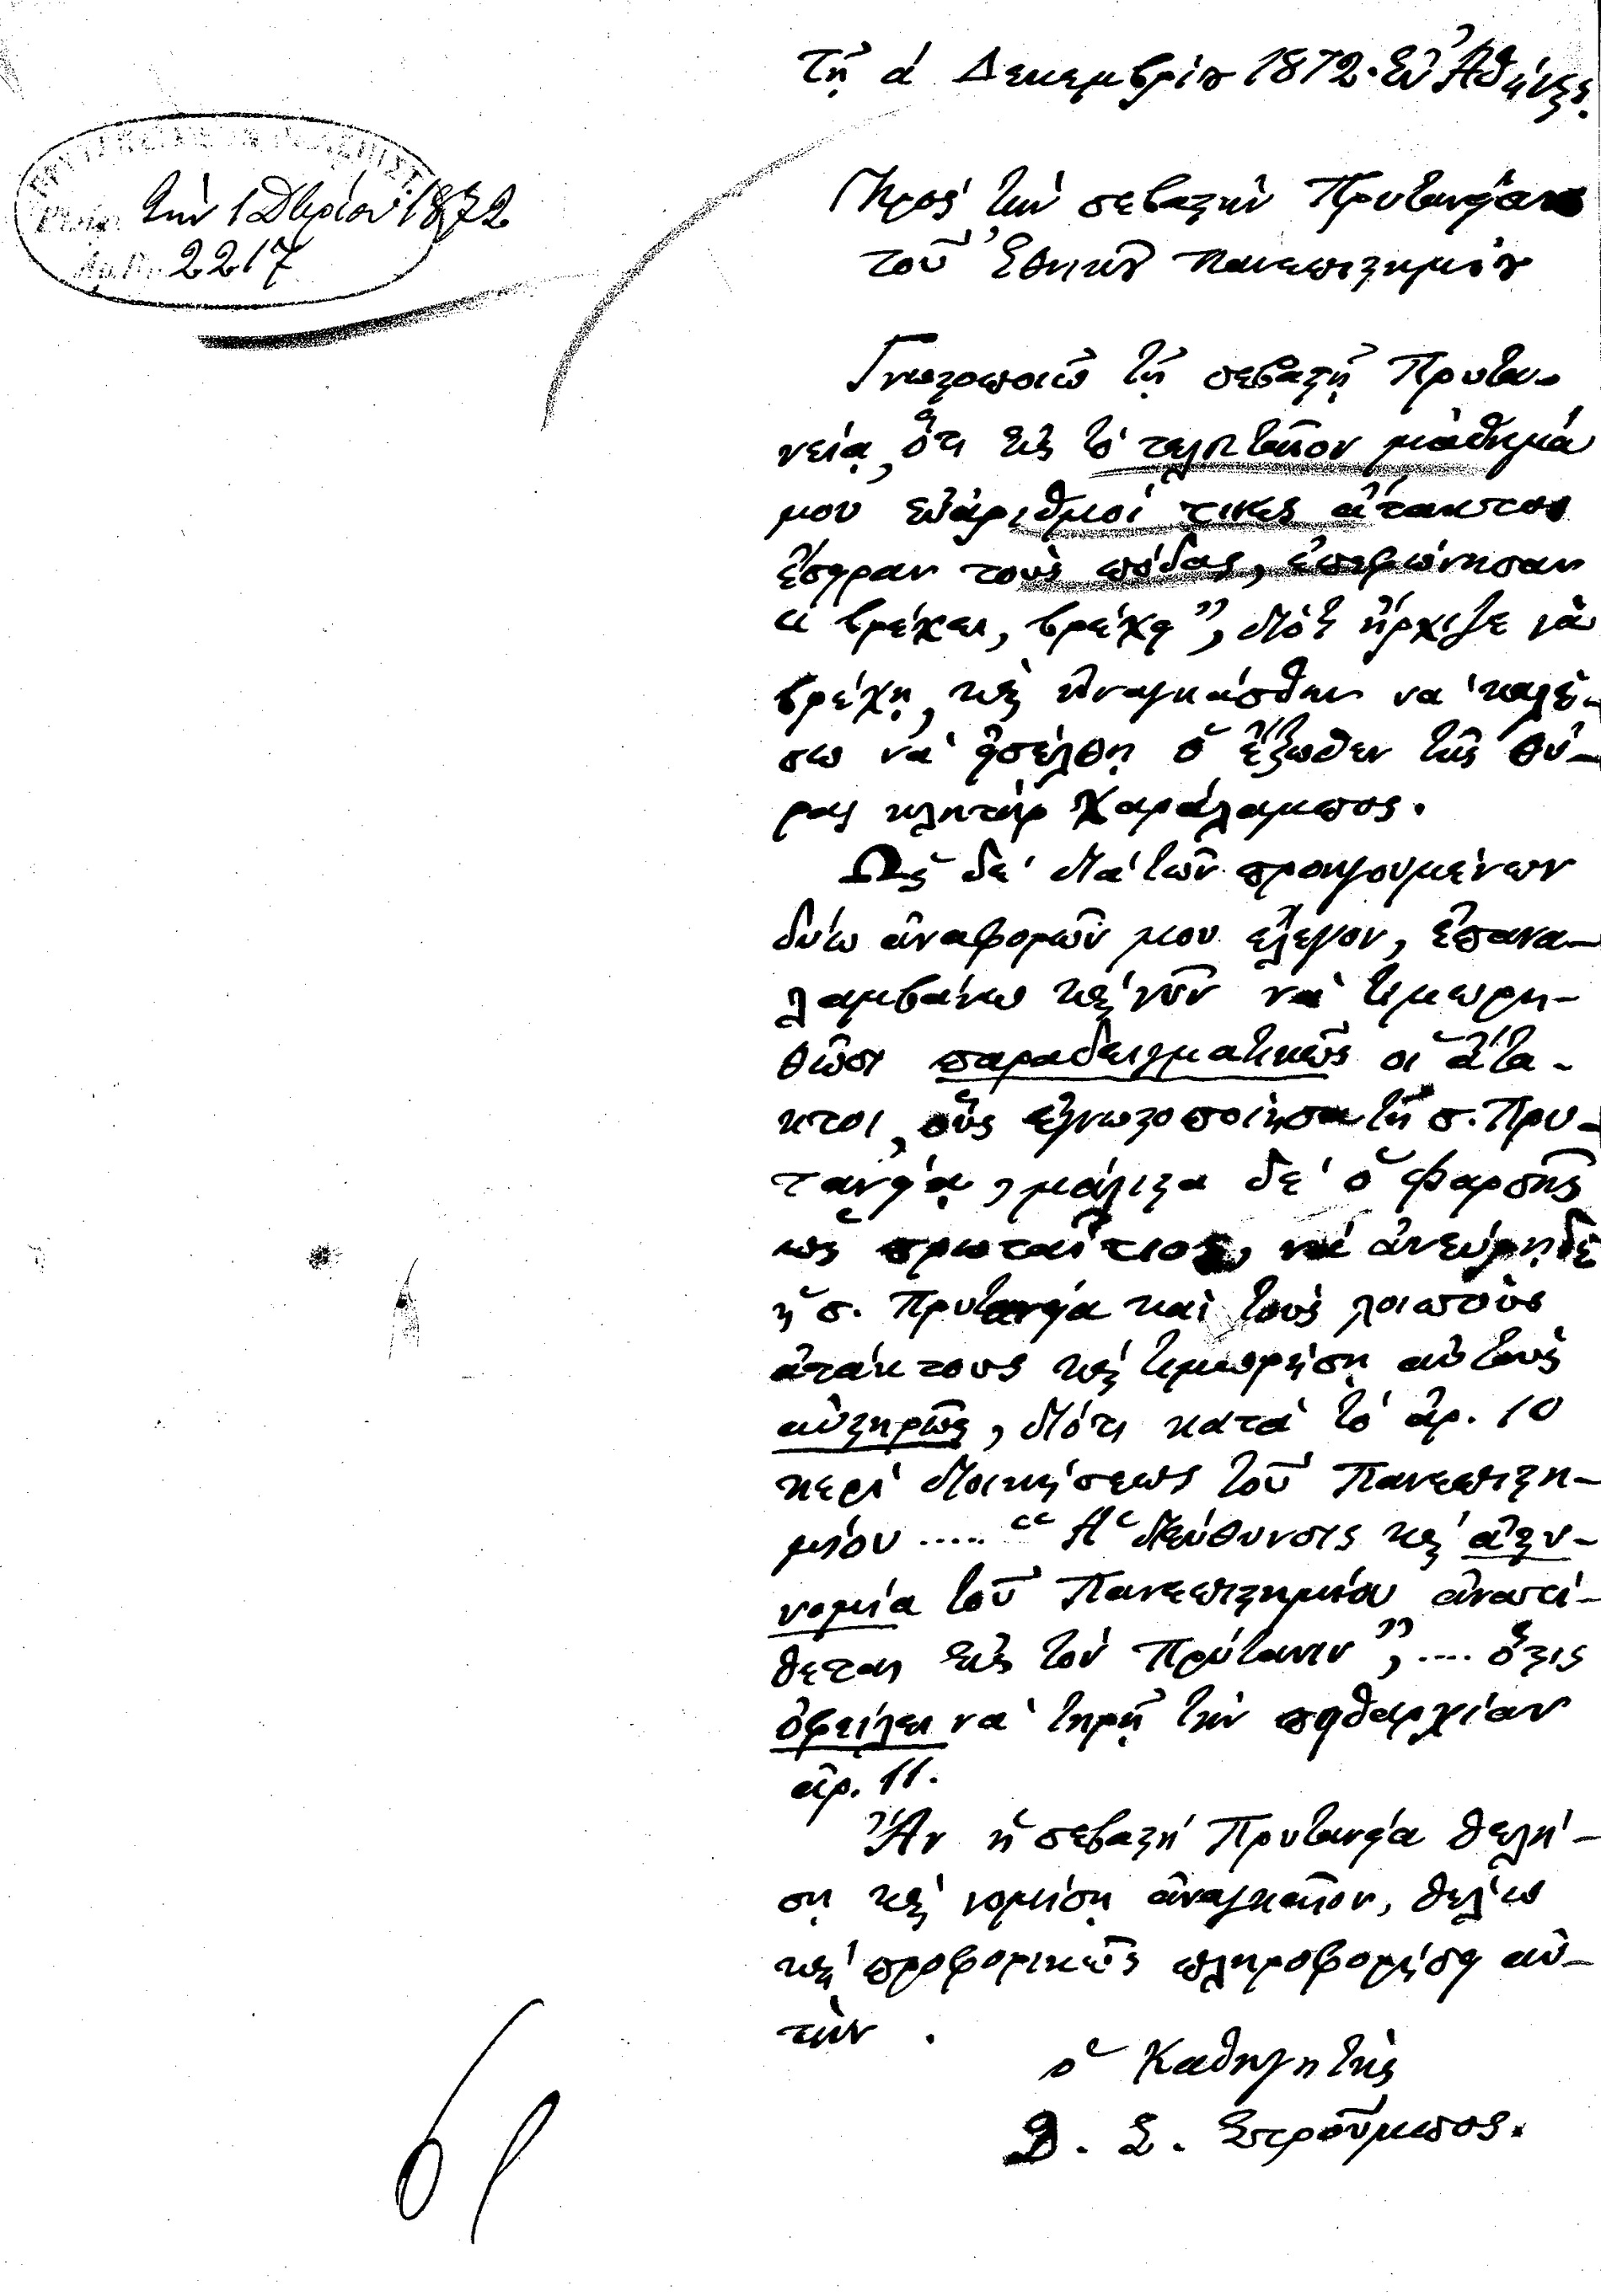 τῇ ά Δεκεμβρίου 1872. Ἐν Ἀθήναις.
ΠΡΥΤΑΝΕΙΑ ΠΑΝΕΠΙΣΤ
τὴν 1 Δβρίου 1872
2217
Πρὸς τὴν σεβαστὴν Πρυτανείαν
τοῦ Ἐθνικοῦ Πανεπιστημίου
Γνωστοποιῶ τῇ σεβαστῇ Πρυτα-
νείᾳ, ὅτι εἰς τὸ τελευταῖον μάθημά
μου εὐάριθμοί τινες ἄτακτοι
ἔσυραν τοὺς πόδας, ἐπεφώνησαν
“ βρέχει, βρέχει ”, διότι ἤρχιζε νὰ
βρέχῃ, καὶ ἠναγκάσθην να καλέ-
σω νὰ εἰσέλθῃ ὁ ἔξωθεν τῆς θύ-
ρας κλητὴρ Χαράλαμπος.
Ὡς δὲ διὰ τῶν προηγουμένων
δύω ἀναφορῶν μου ἔλεγον, ἐπανα-
λαμβάνω καὶ νῦν νὰ τιμωρη-
θῶσι παραδειγματικῶς οἱ ἄτα-
κτοι, οὓς ἐγνωστοποίησα τῇ σ. Πρυ-
τανείᾳ, μάλιστα δὲ ὁ Φαρσῆς
ὡς πρωταίτιος, νὰ ἀνεύρῃ δὲ
ἡ σ. Πρυτανεία καὶ τοὺς λοιποὺς
ἀτάκτους καὶ τιμωρήσῃ αὐτοὺς
αὐστηρῶς, διότι κατὰ τὸ ἄρ. 10
περὶ διοικήσεως τοῦ Πανεπιστη-
μίου ..... “ Ἡ διεύθυνσις καὶ ἀστυ-
νομία τοῦ Πανεπιστημίου ἀνατί-
θεται εἰς τὸν Πρύτανιν ”, .... ὅστις
ὀφείλει νὰ τηρῇ τὴν πειθαρχίαν
ἄρ. 11.
Ἂν ἡ σεβαστὴ Πρυτανεία θελή-
σῃ καὶ νομίσῃ ἀναγκαῖον, θέλω
καὶ προφορικῶς πληροφορήσει αὐ-
τήν.
ὁ Καθηγητὴς
Δ. Σ. Στροῦμπος.